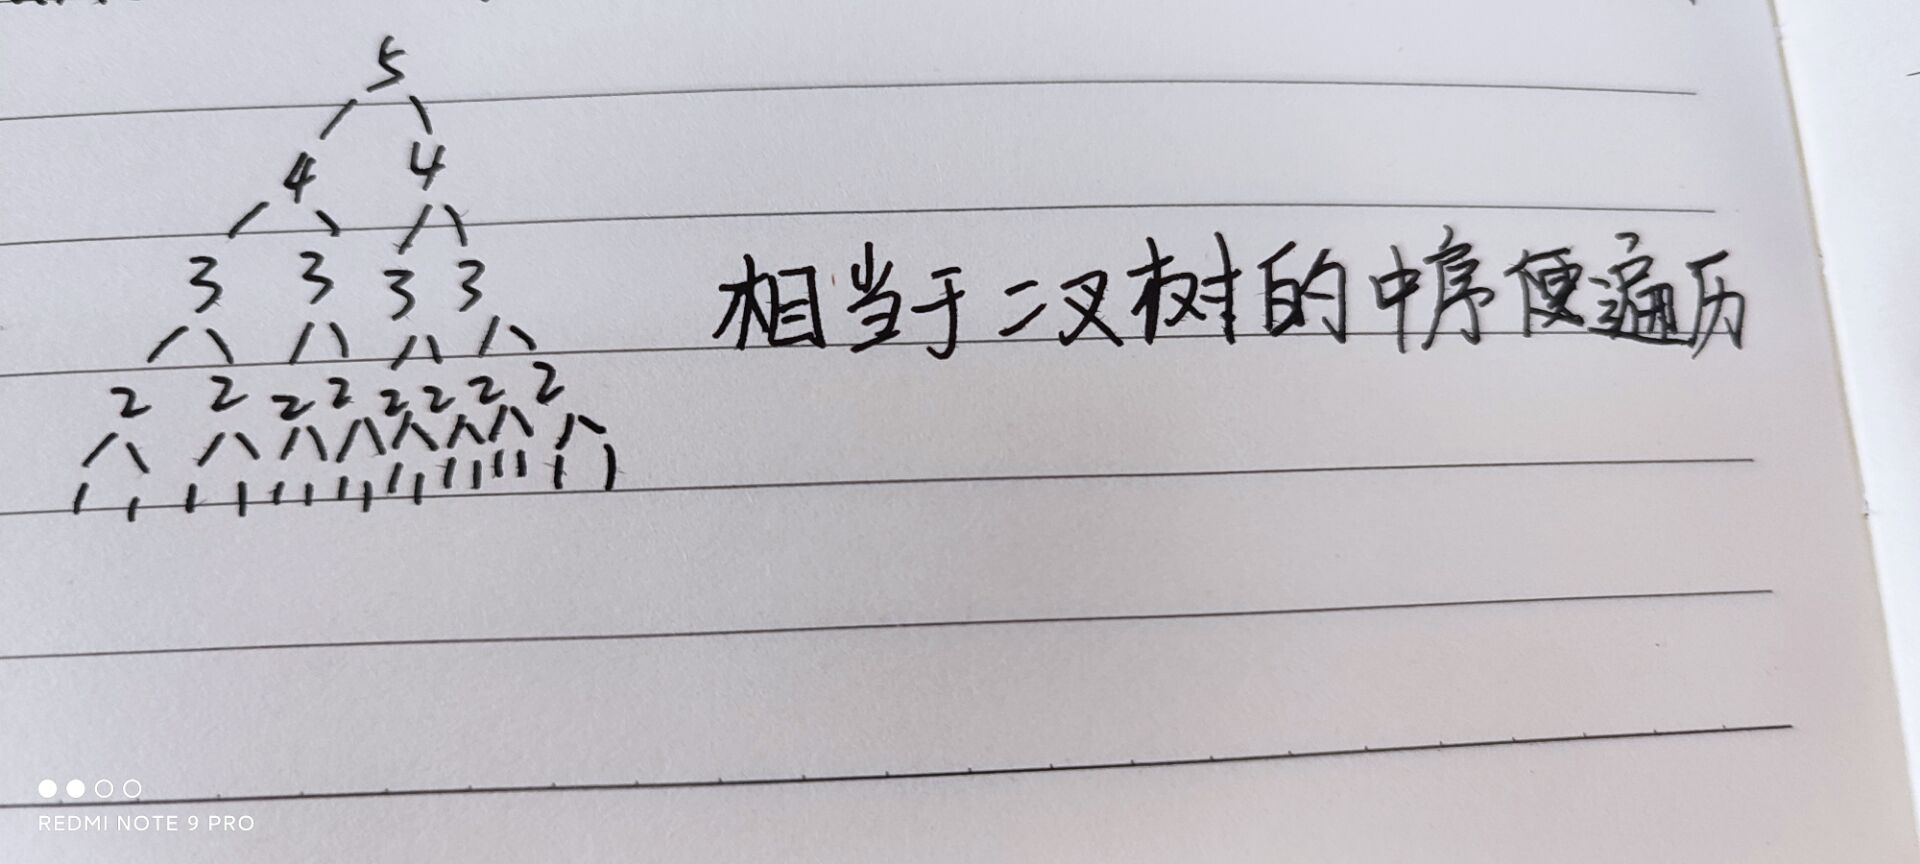 5
4 4
3 3 3 3
2 2 2 2 2 2 2 2
1 1 1 1 1 1 1 1 1 1 1 1 1 1 1 1
相当于二叉树的中序便遍历
REDMI NOTE 9 PRO